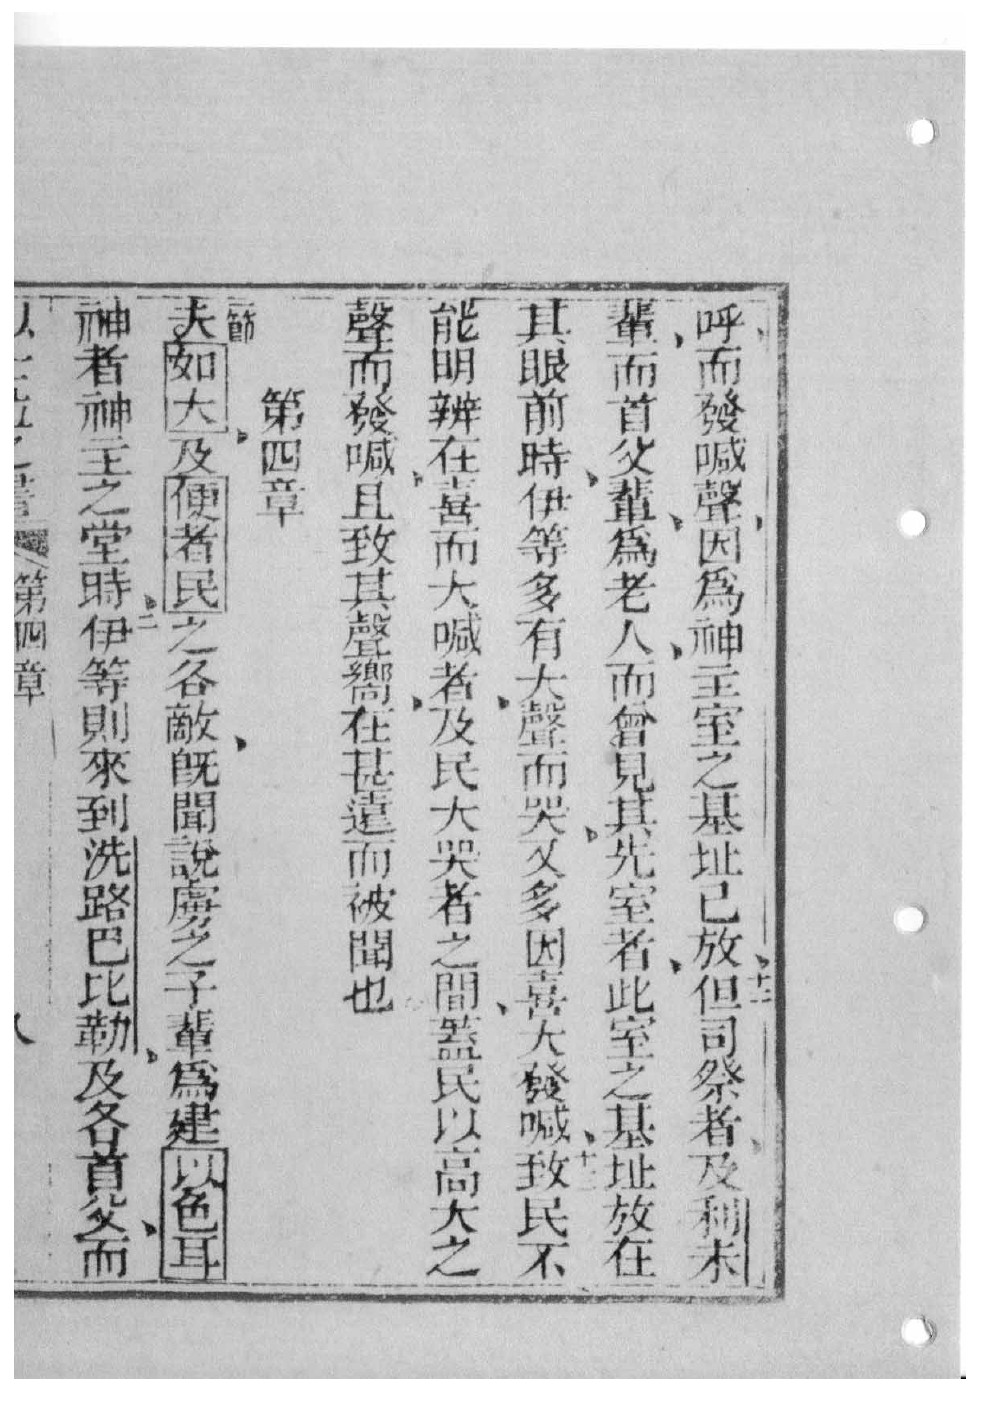 呼而發喊聲因爲神主室之基址已放十二但司祭者及利未
輩而首父輩爲老人而曾見其先室者此室之基址放在
其眼前時伊等多有大聲而哭又多因喜大發喊十三致民不
能明辨在喜而大喊者及民大哭者之間蓋民以高大之
聲而發喊且致其聲嚮在甚遠而被聞也
第四章
節夫如大及便者民之各敵旣聞說虜之子輩爲建以色耳
神者神主之堂時二伊等則來到洗路巴比勒及各首父而
第四章 八